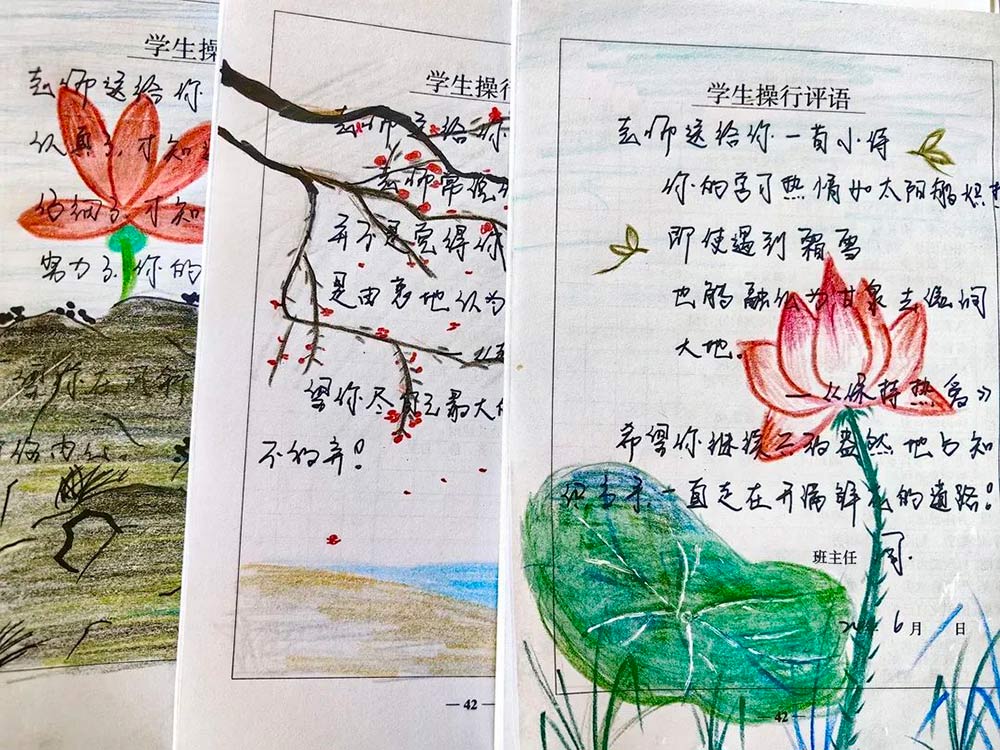 学生操
老师送给你
认真了,才知
细了,才知
努力了,你的
望你在
学生操行
老师送给你
老师常
并不是觉得你
是由衷地认为
望你尽 最大
不的弃!
42
学生操行评语
老师送给你一首小诗
你的学习热情如太阳般炽热
即使遇到霜雪
也能融化为甘泉去滋润
大地。
—《保持热爱》
希望你继续兴致盎然地与知
识 一直走在开满鲜花的道路!
班主任
6月 日
42